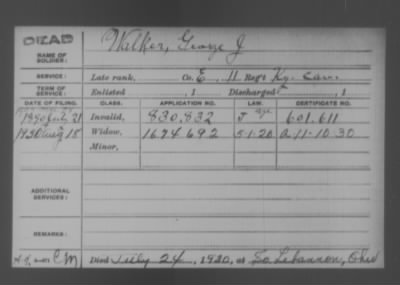 DEAD
NAME OF SOLDIER: Walker, George J
SERVICE: Late rank, Co. E, 11 Reg't Ky. Cav.
TERM OF SERVICE: Enlisted , 1 Discharged , 1
DATE OF FILING. CLASS. APPLICATION NO. LAW. CERTIFICATE NO.
1890 July 21 Invalid, 830,832 J 601.611
1920 Aug 18 Widow, 1674692 5-1-20 A 11-10-30
Minor,
ADDITIONAL SERVICES:
REMARKS:
C M Died July 24, 1920, at So Lebanon, Ohio